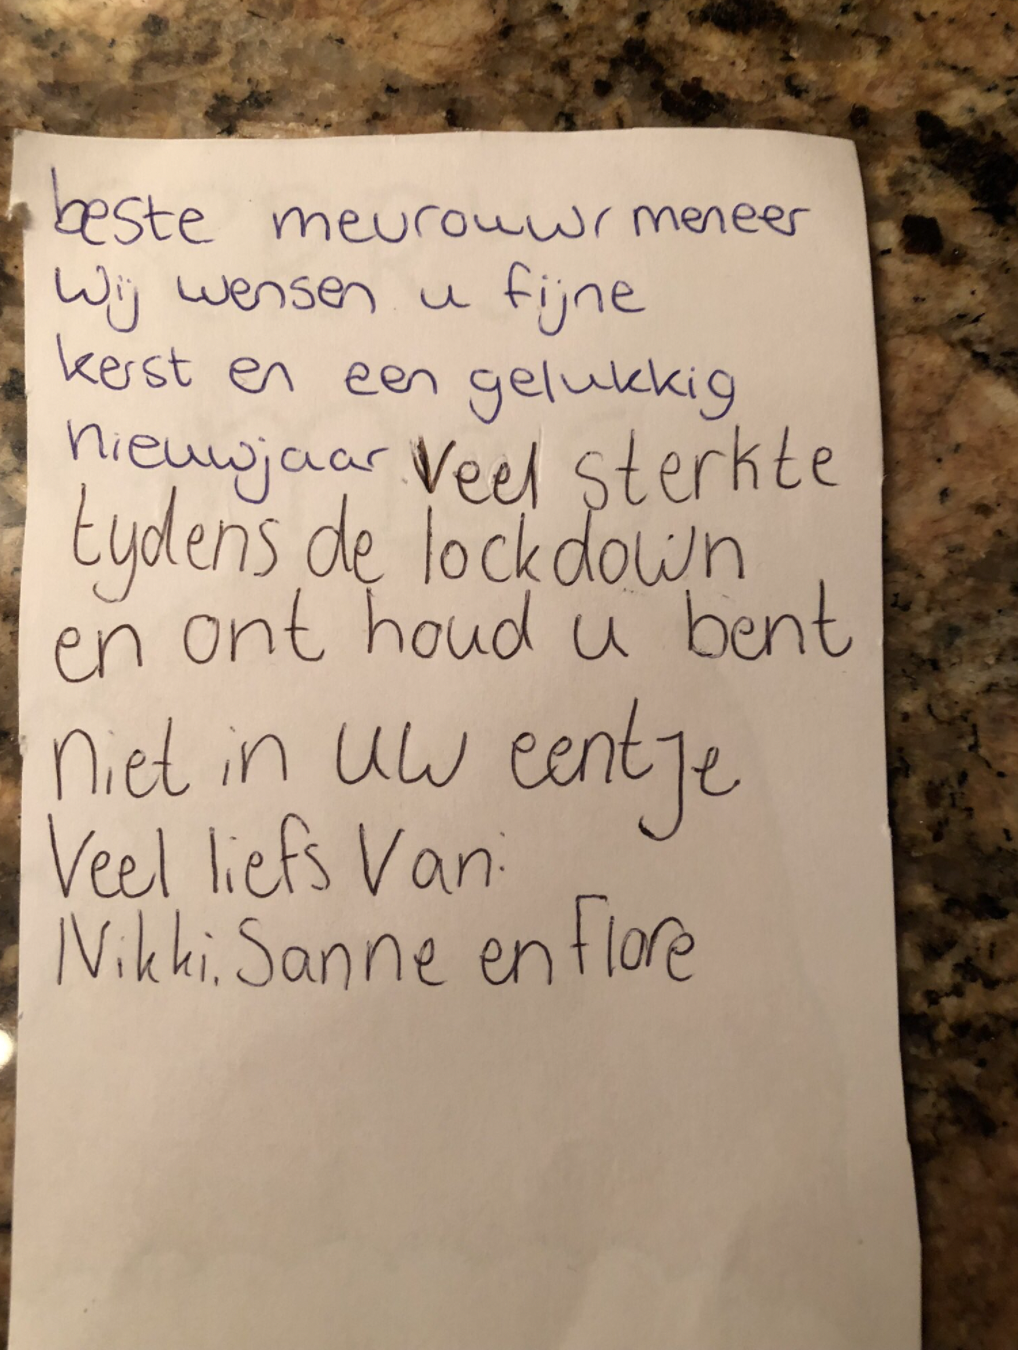 beste meurouwr meneer
Wij wensen u fijne
kerst en een gelukkig
nieuwjaar Veel sterkte
tydens de lockdown
en ont houd u bent
niet in uw eentje
Veel liefs Van:
Nikki, Sanne en Flore